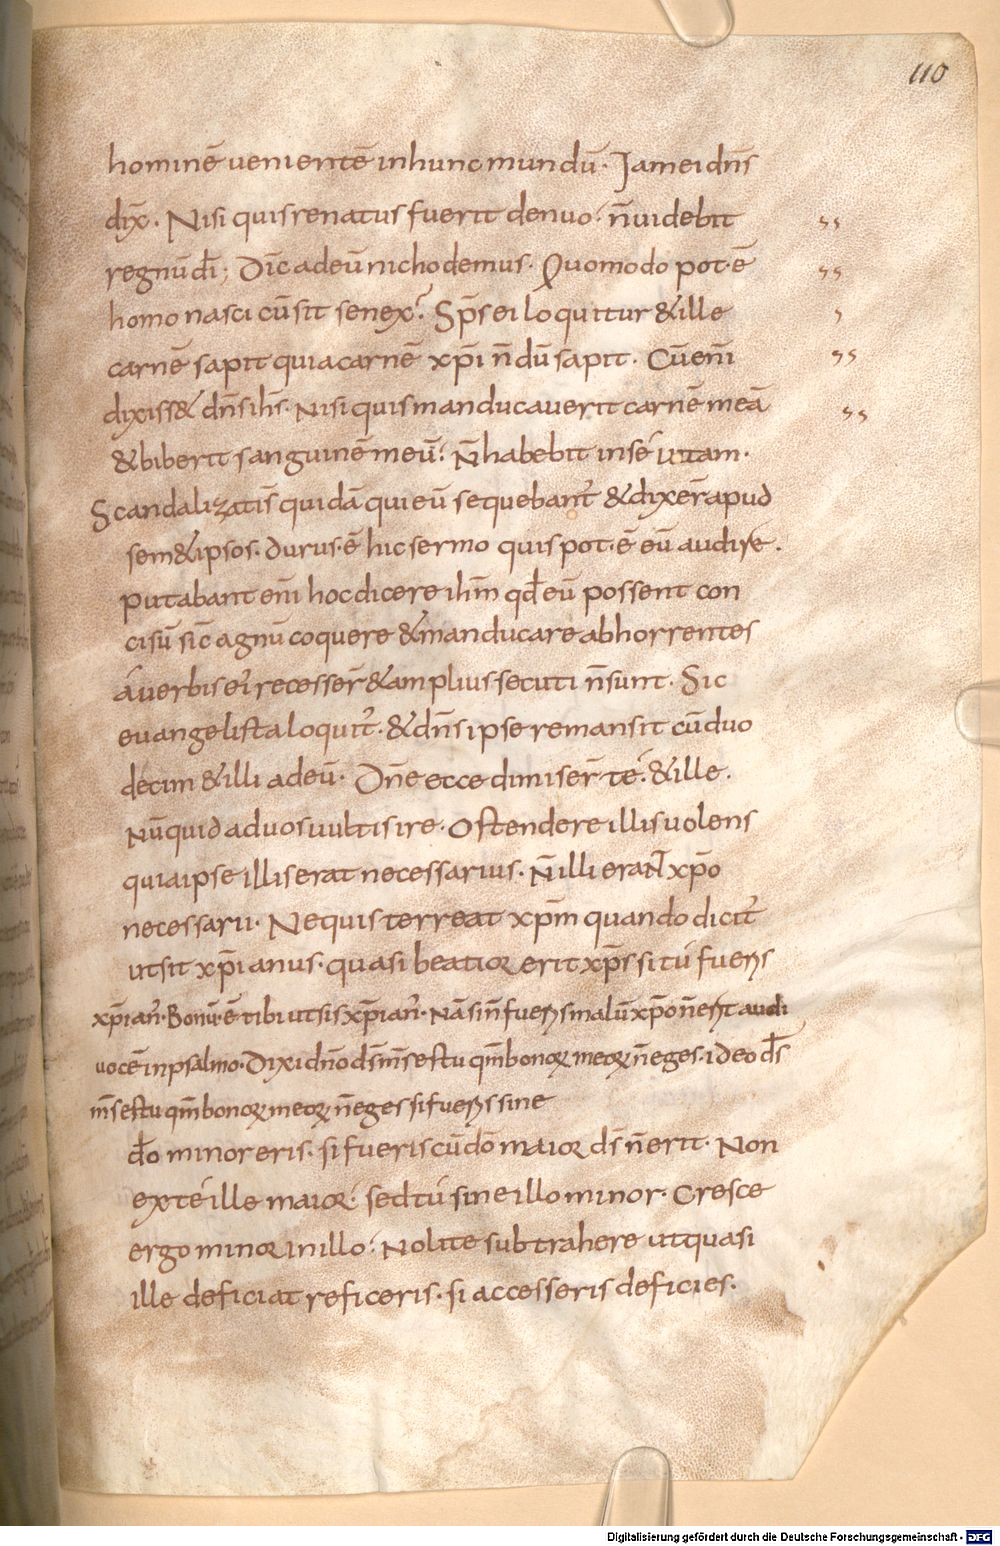 110
hominē uenientē inhunc mundū· Jam ei dn̄s
dix̄· Nisi quis renatus fuerit denuo· n̄ uidebit
regnū dī; Dic̄ ad eū nichodemus· Quomodo pot·ē
homo nasci cū sit senex? Sp̄s ei loquitur & ille
carnē sapit quia carnē xp̄i n̄dū sapit· Cū eni̅
dixiss& dn̄s ih̄s· Nisi quis manducauerit carnē meā
& biberit sanguinē meū· N̄ habebit in sé uitam·
Scandalizati s̄ quidā qui eū sequebant̄ & dixer̄ apud
sem&ipsos· durus·ē hic sermo quis pot·ē eū audire·
putabant eni̅ hoc dicere ih̄m qđ eū possent con
cisū sic̄ agnū coquere & manducare abhorrentes
á uerbis ei' recesser̄ & amplius secuti n̄ sunt· Sic
euangelista loquit̄· & dn̄s ipse remansit cū duo
decim & illi ad eū· Dn̄e ecce dimiser̄ té· & ille·
Nūquid a d uos uultis ire· Ostendere illis uolens
quia ipse illis erat necessarius· N̄ illi erant xp̄o
necessarii· Ne quis terreat xp̄m quando dicit̄
ut sit xp̄ianus· quasi beatior erit xp̄s si tú fueris
xp̄ian̄· Bonū·ē tibi ut sis xp̄ian̄· Nā si n̄ fueris malū xp̄o n̄ erit audi
uocē in psalmo· Dixi dn̄o ds̄ ms̄ es tu qm̄ bonorum meorum n̄ eges· ideo ds̄
ms̄ es tu qm̄ bonorum meorum n̄ eges si fueris sine
dō minor eris· si fueris cū dō maior ds̄ n̄ erit· Non
ex té ille maior· sed tú sine illo minor· Cresce
ergo minor in illo· Nolite subtrahere ut quasi
ille deficiat reficeris· si accesseris deficies·
Digitalisierung gefördert durch die Deutsche Forschungsgemeinschaft - DFG